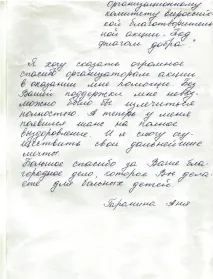 Организационному
комитету всероссий-
ской благотворитель-
ной акции "Под
флагом добра"
Я хочу сказать огромное
спасибо организаторам акции
в оказании мне помощи без
Вашей поддержки мне невоз-
можно было бы излечиться
полностью. А теперь у меня
появился шанс на полное
выздоровление. И я смогу осу-
ществить свои дальнейшие
мечты.
Большое спасибо за Ваше бла-
городное дело, которое Вы дела-
ете для больных детей.
Таранина Аня